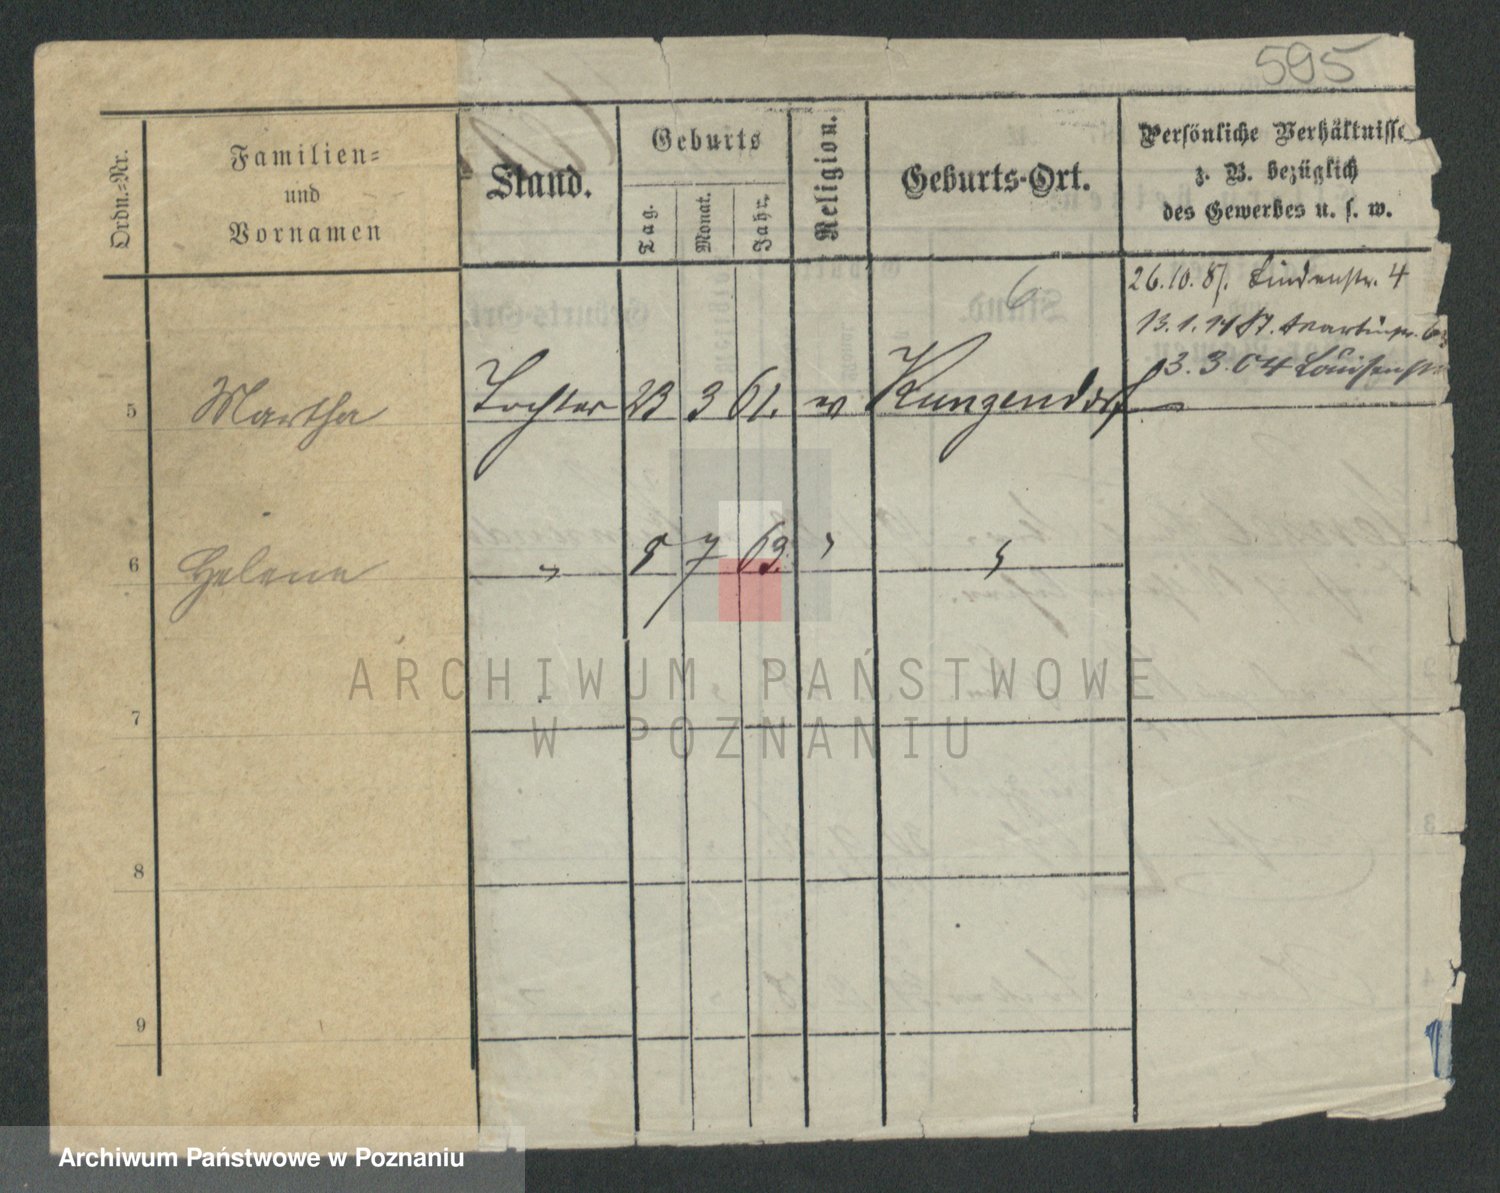 595
Ordn.-Nr.
Familien-
und
Vornamen
Stand.
Geburts
Tag.
Monat.
Jahr.
Religion.
Geburts-Ort.
Persönliche Verhältnisse
z. B. bezüglich
des Gewerbes u. s. w.
6
26.10.87. Lindenstr. 4
13.1.91 St. Martinstr.
3.3.04 Louisenst
5 Martha Tochter 23 3 61. ev Kunzendorf
6 Helene " 5 7 63. " "
ARCHIWUM PAŃSTWOWE
W POZNANIU
7
8
9
Archiwum Państwowe w Poznaniu